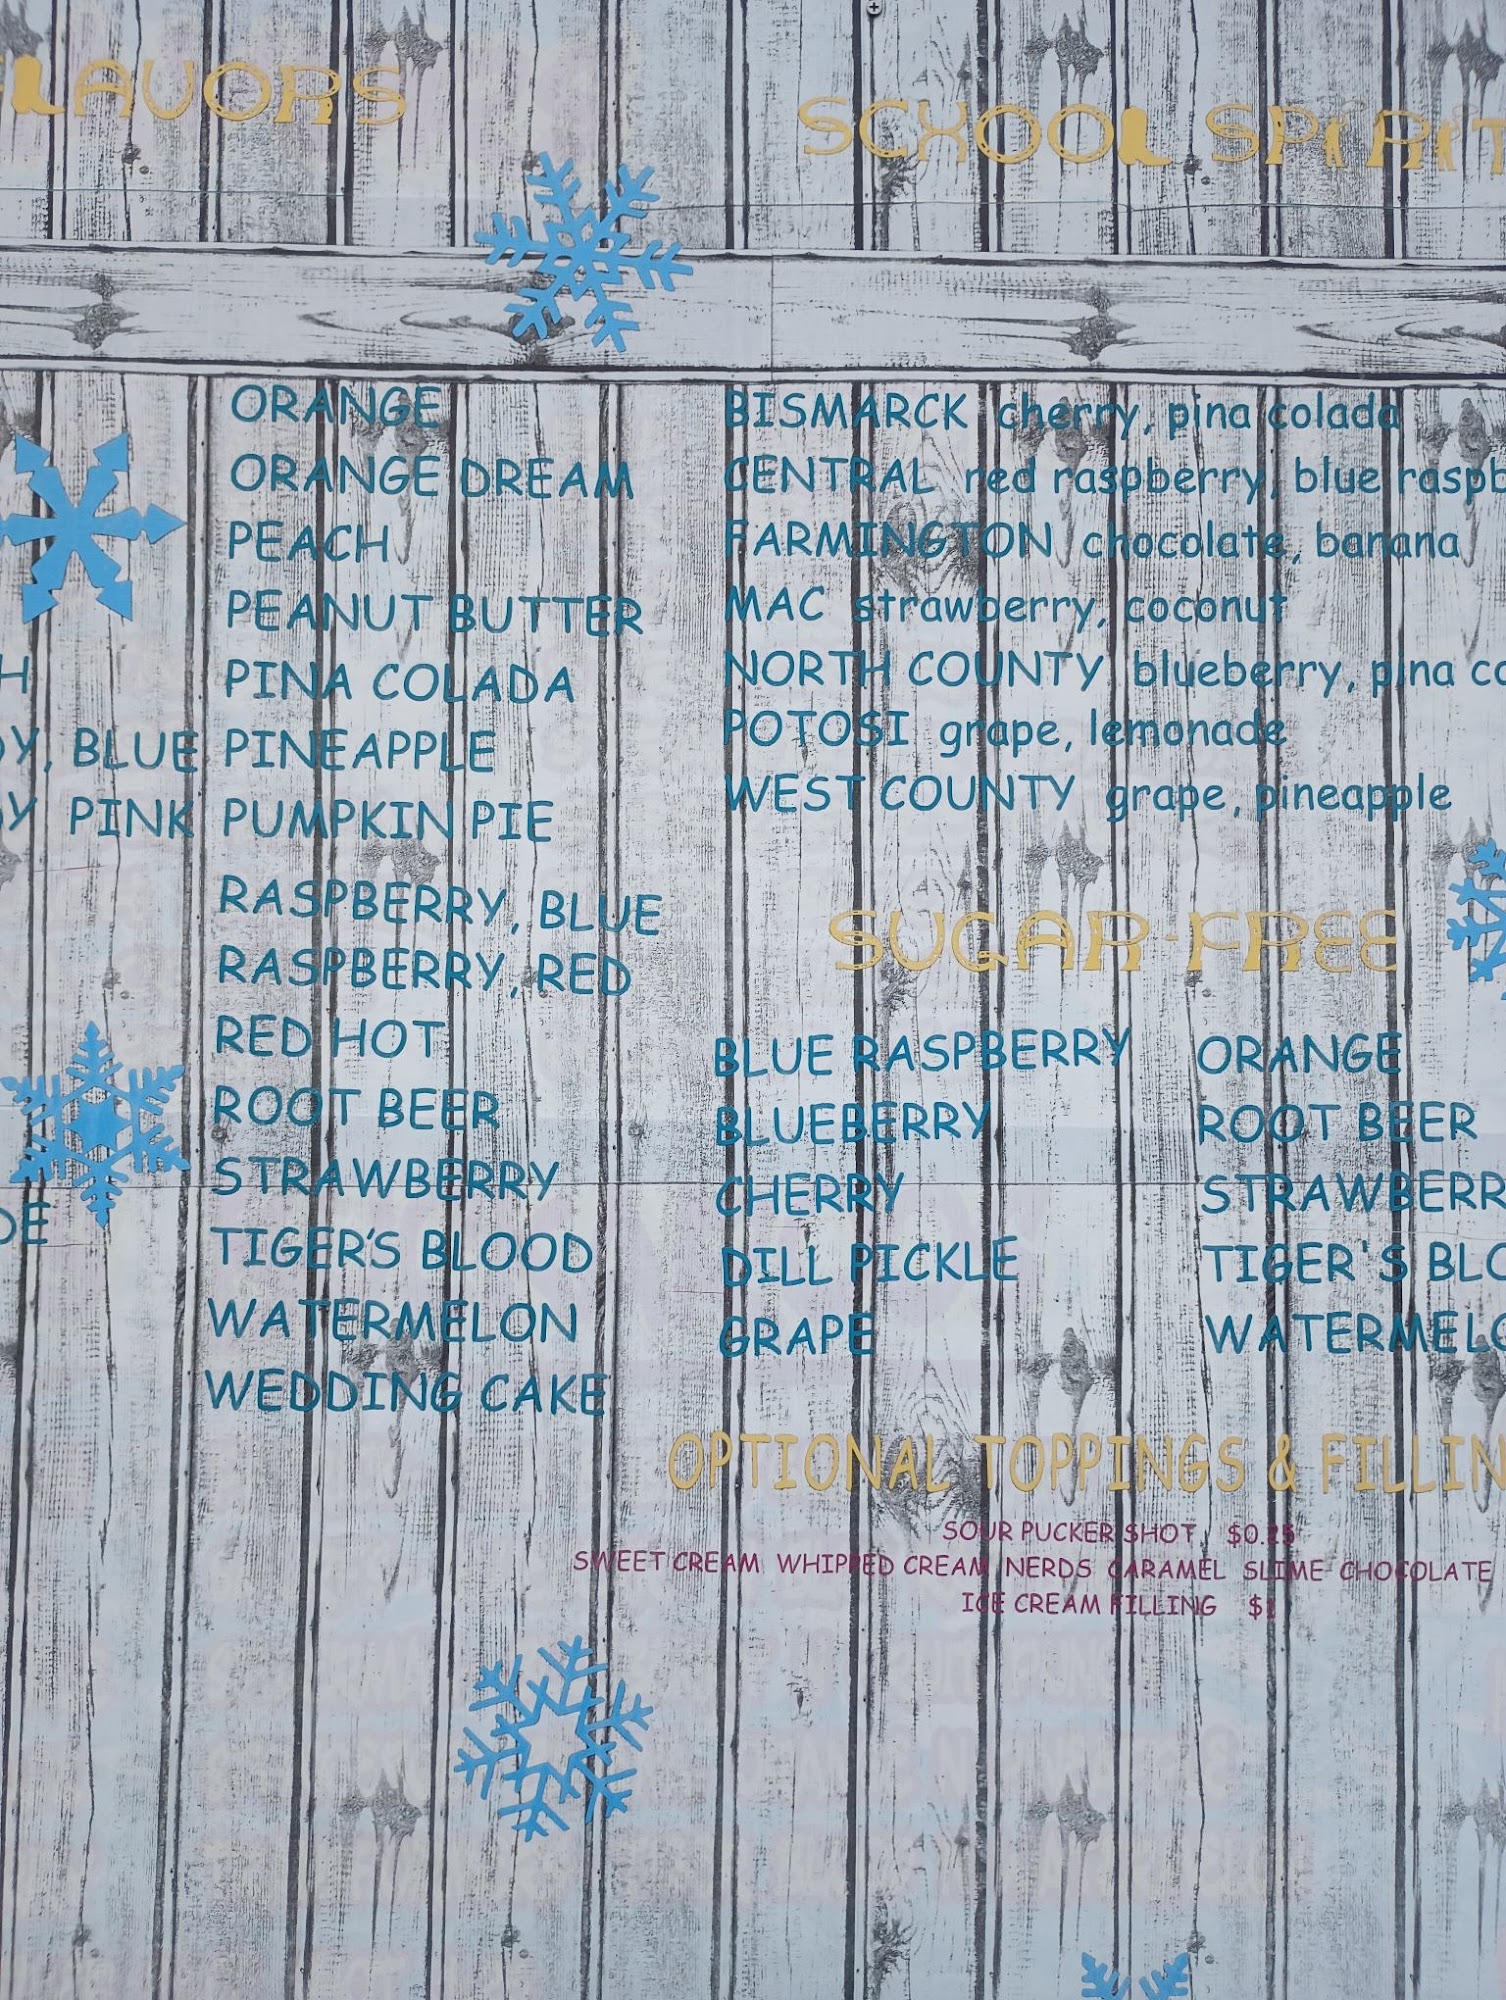 FLAVORS
SCHOOL SPIRIT
BLUE
PINK
ORANGE
ORANGE DREAM
PEACH
PEANUT BUTTER
PINA COLADA
PINEAPPLE
PUMPKIN PIE
RASPBERRY, BLUE
RASPBERRY, RED
RED HOT
ROOT BEER
STRAWBERRY
TIGER'S BLOOD
WATERMELON
WEDDING CAKE
BISMARCK cherry, pina colada
CENTRAL red raspberry, blue raspb
FARMINGTON chocolate, banana
MAC strawberry, coconut
NORTH COUNTY blueberry, pina co
POTOSI grape, lemonade
WEST COUNTY grape, pineapple
SUGAR-FREE
BLUE RASPBERRY
BLUEBERRY
CHERRY
DILL PICKLE
GRAPE
ORANGE
ROOT BEER
STRAWBERR
TIGER'S BLO
WATERMELO
OPTIONAL TOPPINGS & FILLIN
SOUR PUCKER SHOT $0.25
SWEET CREAM WHIPPED CREAM NERDS CARAMEL SLIME CHOCOLATE
ICE CREAM FILLING $1